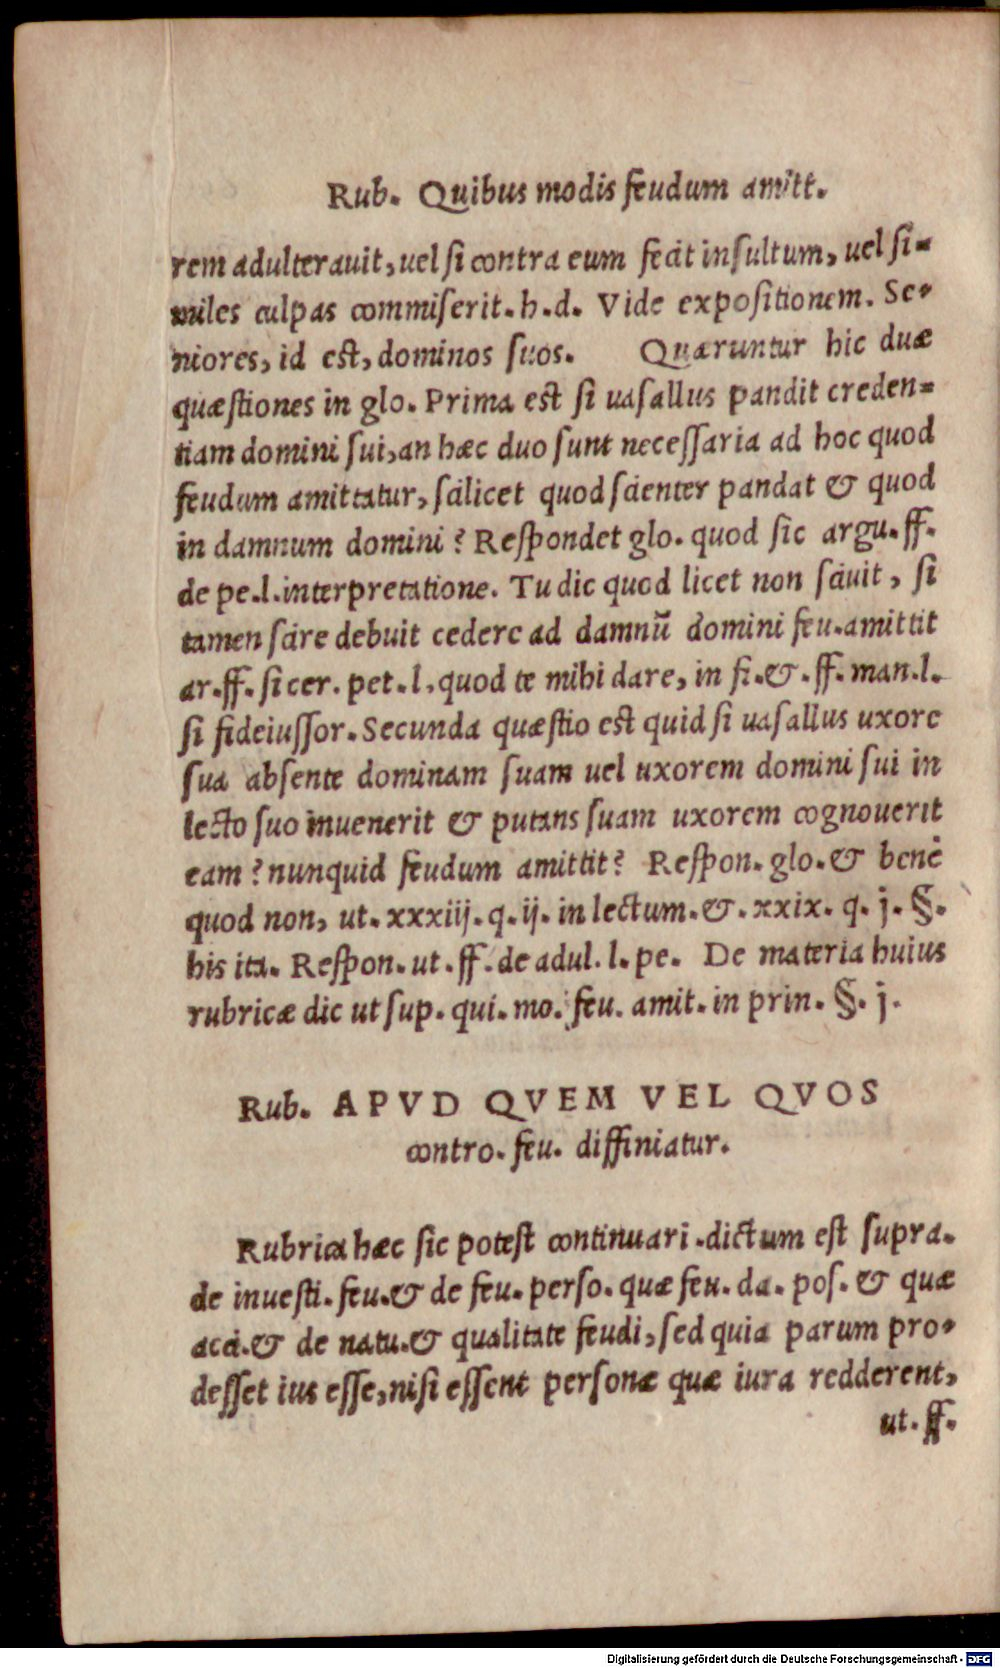 Rub. Quibus modis feudum amitt.
rem adulterauit, uel si contra eum fecit insultum, uel si-
miles culpas commiserit. h. d. Vide expositionem. Se-
niores, id est, dominos suos. Quæruntur hic duæ
quæstiones in glo. Prima est si uasallus pandit creden-
tiam domini sui, an hæc duo sunt necessaria ad hoc quod
feudum amittatur, scilicet quod scienter pandat & quod
in damnum domini? Respondet glo. quod sic argu. ff.
de pe. l. interpretatione. Tu dic quod licet non sciuit, si
tamen scire debuit cedere ad damnū domini feu. amittit
ar. ff. si cer. pet. l. quod te mihi dare, in fi. &. ff. man. l.
si fideiussor. Secunda quæstio est quid si uasallus uxore
sua absente dominam suam uel uxorem domini sui in
lecto suo inuenerit & putans suam uxorem cognouerit
eam? nunquid feudum amittit? Respon. glo. & benè
quod non, ut. xxxiij. q. ij. in lectum. &. xxix. q. j. §.
his ita. Respon. ut. ff. de adul. l. pe. De materia huius
rubricæ dic ut sup. qui. mo. feu. amit. in prin. §. j.
Rub. APVD QVEM VEL QVOS
contro. feu. diffiniatur.
Rubrica hæc sic potest continuari. dictum est supra.
de inuesti. feu. & de feu. perso. quæ feu. da. pos. & quæ
acci. & de natu. & qualitate feudi, sed quia parum pro-
desset ius esse, nisi essent personæ quæ iura redderent,
ut. ff.
Digitalisierung gefördert durch die Deutsche Forschungsgemeinschaft - DFG